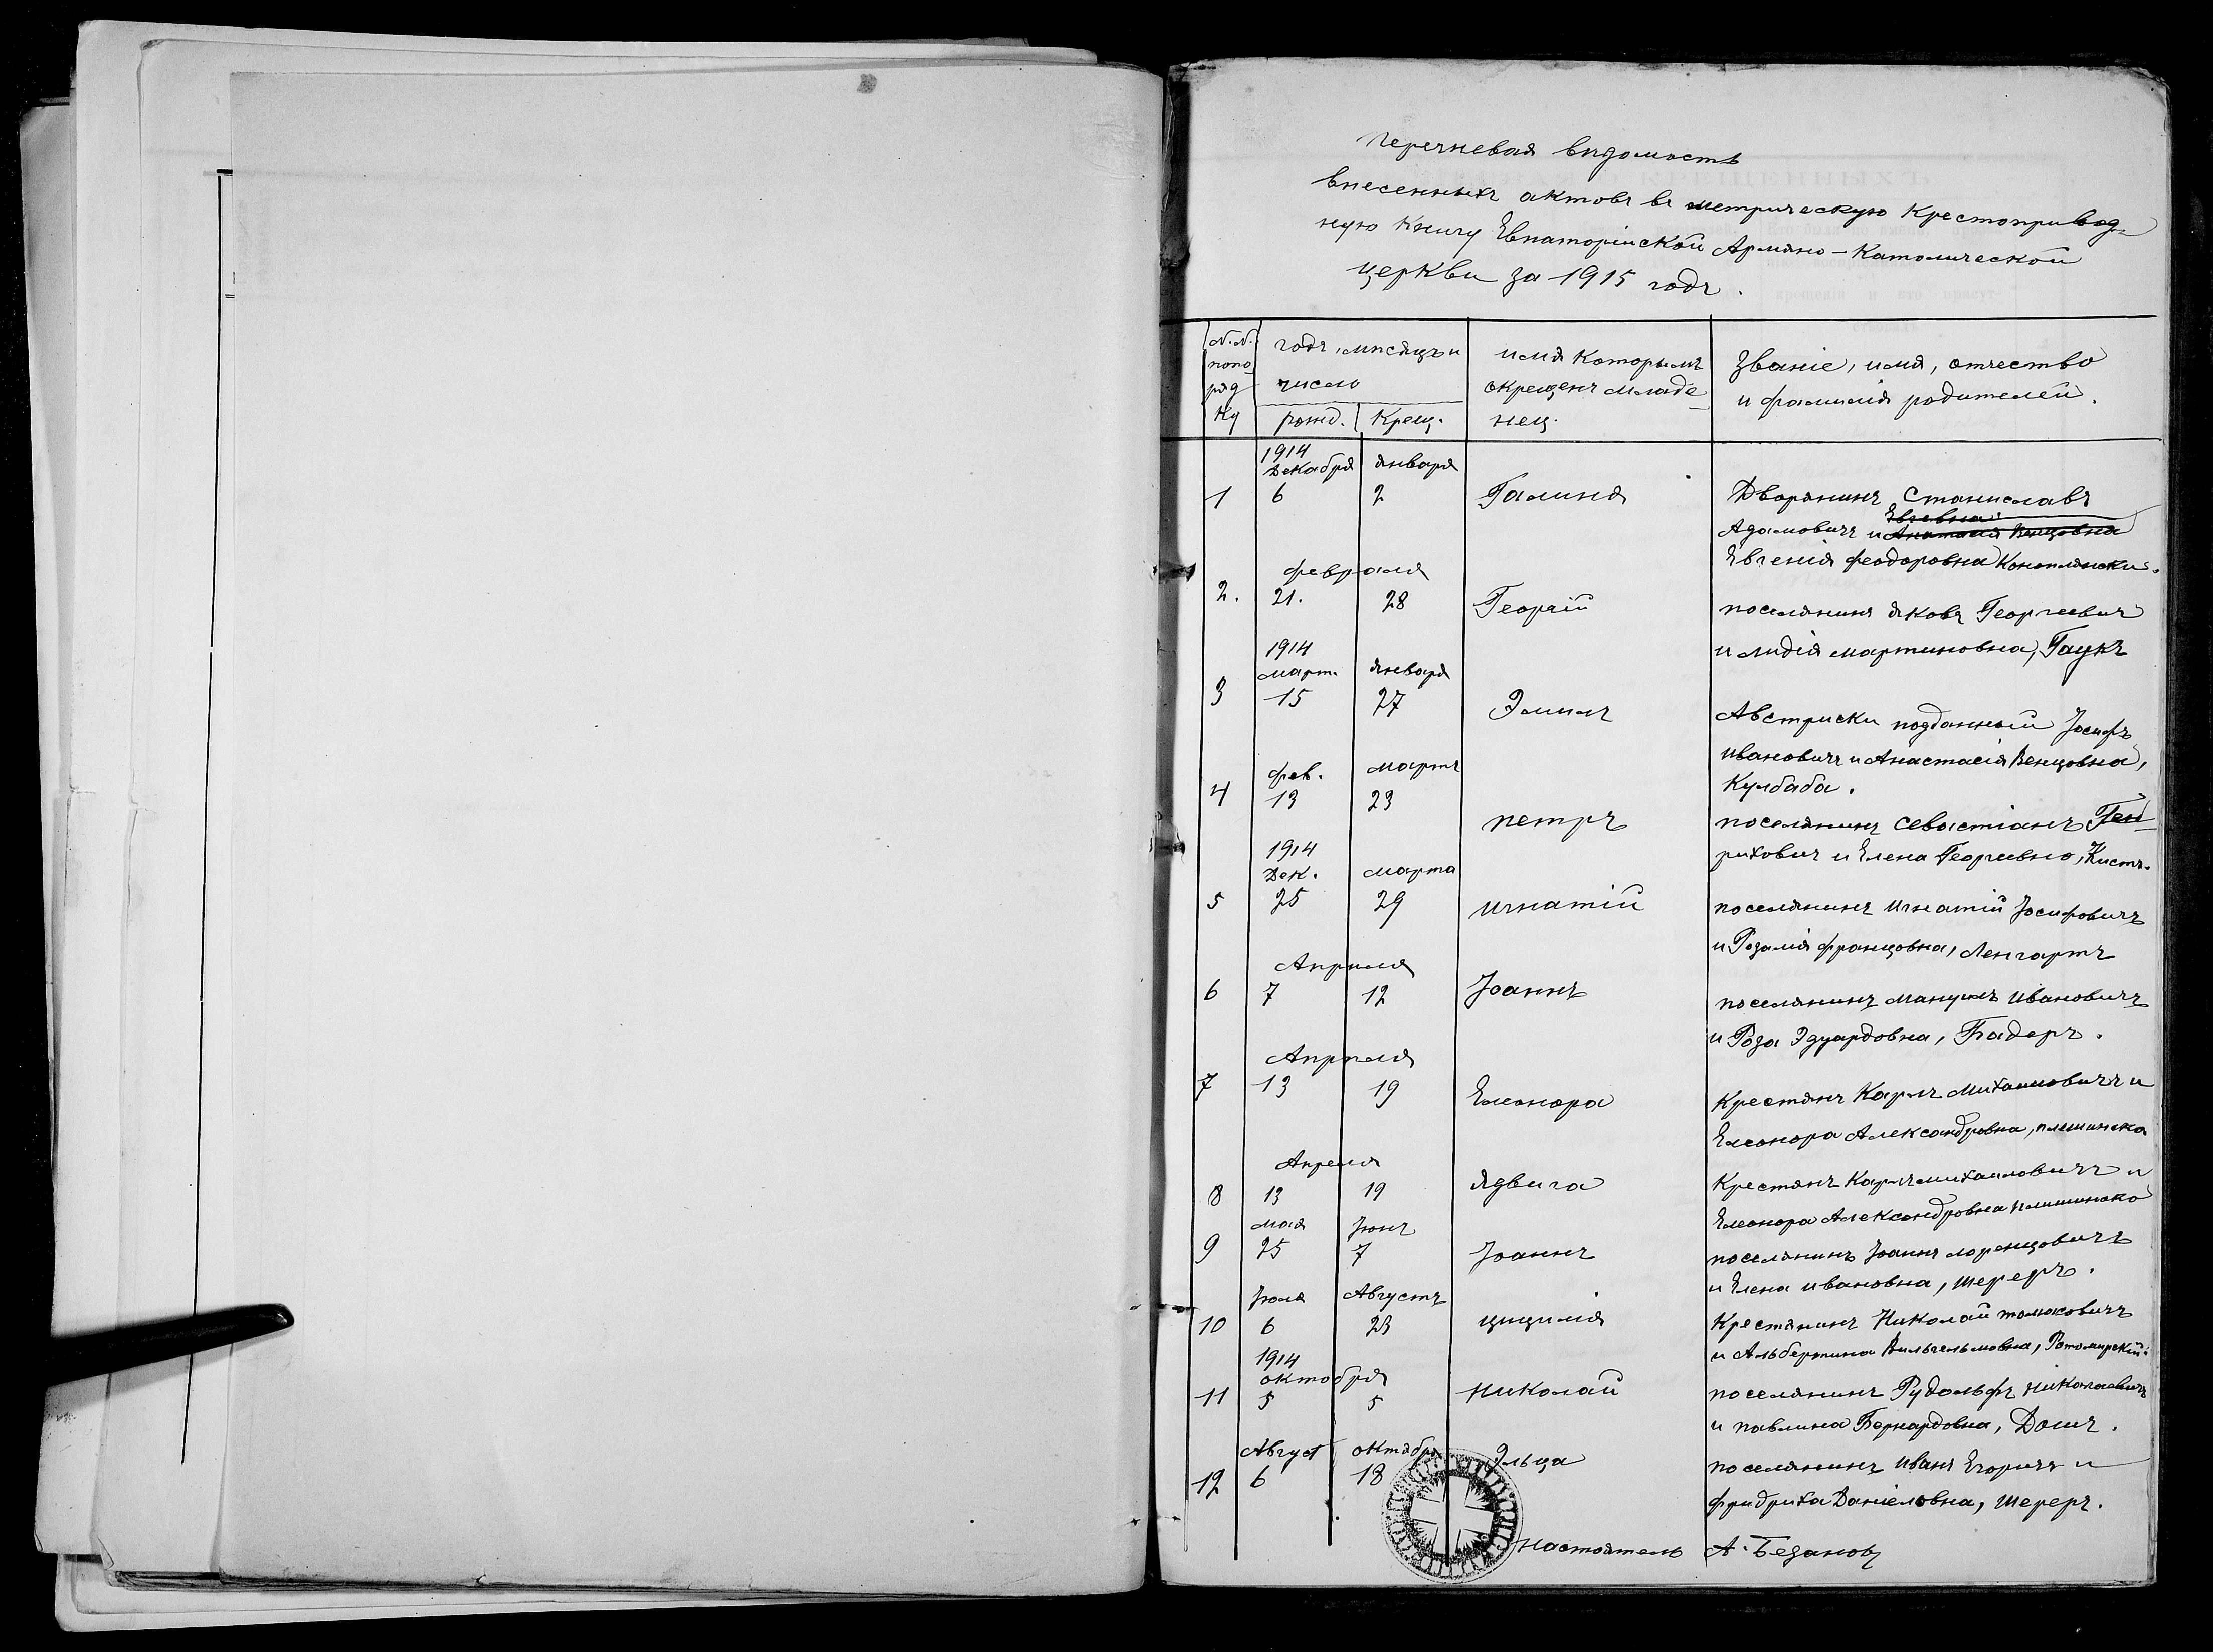 Перечневая вѣдомость
внесенныхъ актовъ въ метрическую крестопривод-
ную книгу Евпаторійской Армяно-Католической
церкви за 1915 годъ.
N.N. попорядку | годъ, мѣсяцъ и число | имя которымъ окрещенъ младенец. | Званіе, имя, отчество и фамилія родителей.
рожд. | Крещ.
1914
Декабря | января
1 | 6 | 2 | Галиня | Дворянинъ Станиславъ
Адамовичъ и
Евгенія Феодоровна
февраля
2. | 21. | 28 | Георгій | поселянинъ Яковъ Георгіевичъ
и Лидія Мартиновна, Гаукъ
1914
март. | января
3 | 15 | 27 | Эмилъ | Австриски подданный Іосифъ
Ивановичъ и Анастасія Венцовна,
Кулбаба.
фев. | мартъ
4 | 13 | 23 | петръ | поселянинъ Севастіанъ Ген-
рихович и Елена Георгіевна, Кистъ.
1914
Дек. | марта
5 | 25 | 29 | Игнатій | поселянинъ Игнатій Іосифовичъ
и Розалія Францовна, Ленгартъ
Апрѣля
6 | 7 | 12 | Іоаннъ | поселянинъ Мануилъ Ивановичъ
и Роза Эдуардовна, Бадеръ.
Апрѣля
7 | 13 | 19 | Елеонора | Крестянъ Карлъ Михаиловичъ и
Елеонора Александровна,
Апреля
8 | 13 | 19 | Ядвига | Крестянъ Карлъ Михаиловичъ и
Елеонора Александровна
мая | Іюнъ
9 | 25 | 7 | Іоаннъ | поселянинъ Іоаннъ Лоренцовичъ
и Елена Ивановна, Шереръ.
Іюля | Августъ
10 | 6 | 23 | Цицилія | Крестянинъ Николай Томасовичъ
и Альбертина Вильгельмовна,
1914
октобря
11 | 5 | 5 | Николай | поселянинъ Рудольфъ Николаевичъ
и Павлина Бернардовна,
Август | октабря
12 | 6 | 18 | Эльца | поселянинъ Иванъ Егоричъ и
Фридриха Даніеловна, Шереръ.
Настоятель А. Безановъ